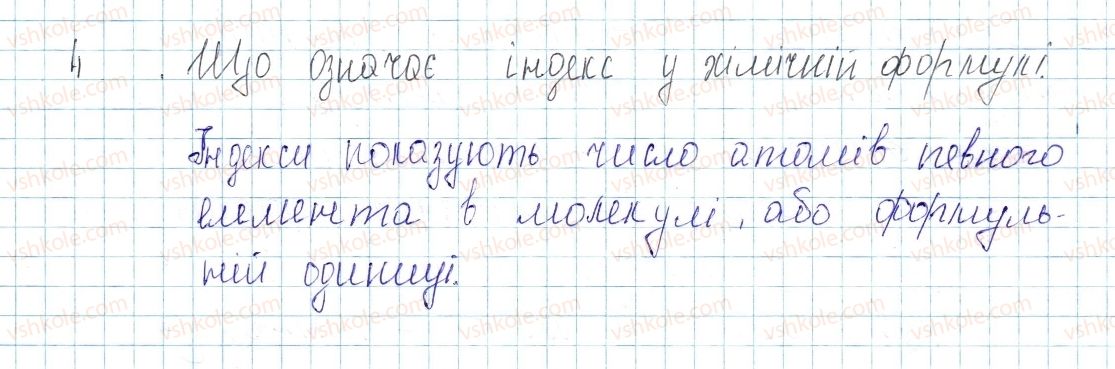 4. Що означає індекс у хімічній формулі.
Індекси показують число атомів певного
елемента в молекулі, або формуль-
ній одиниці.